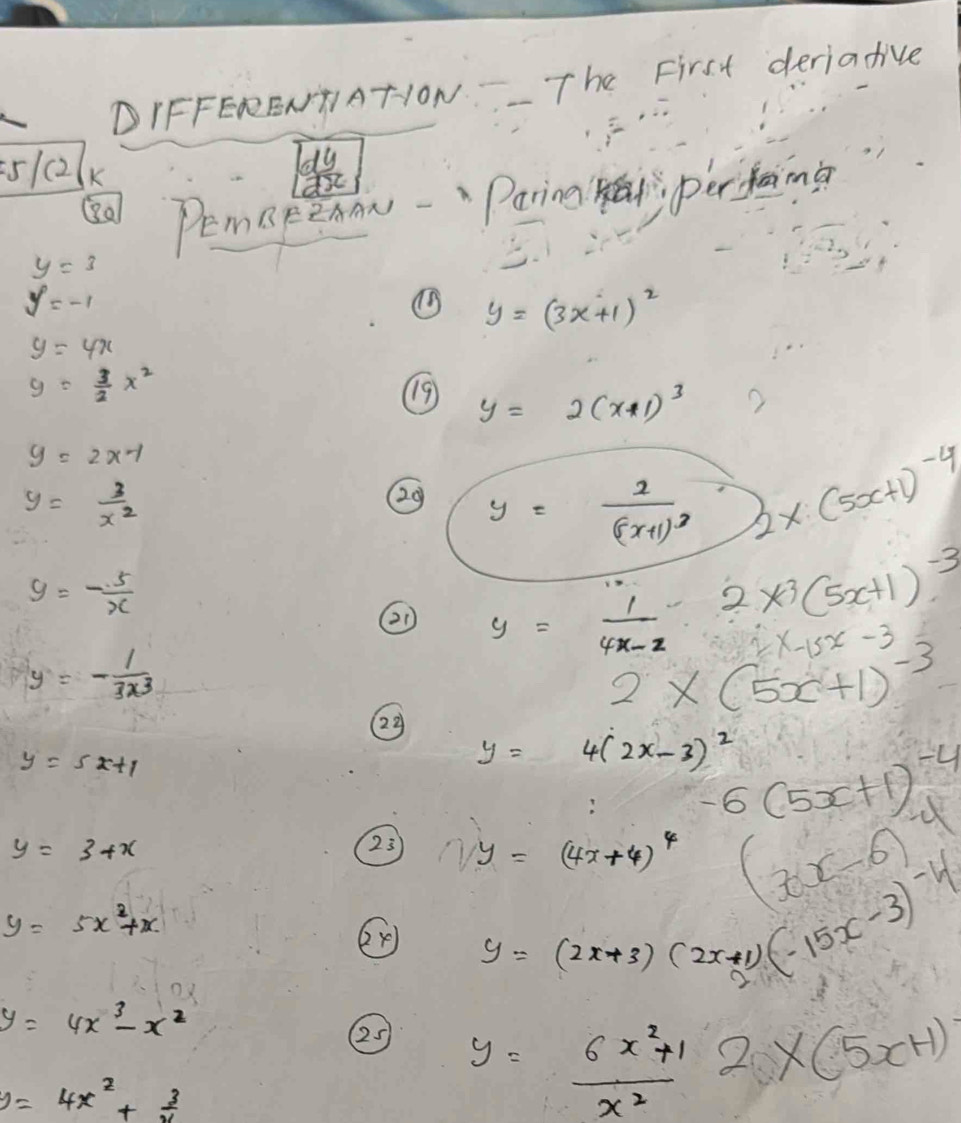 DIFFERENTIATION - The First derjative
5/C2 K
dy/dx
30
PEMBEZAAN - "Peringkat pertama"
y = 3
y = -1
y = 4x
y = 3/2 x²
y = 2x-1
y = 3/x²
y = -5/x
y = -1/3x³
y = 5x+1
y = 3+x
y = 5x²+x
y = 4x³-x²
y = 4x² + 3/x
⑱ y = (3x+1)²
⑲ y = 2(x+1)³
⑳ y = 2/(5x+1)³
2 × (5x+1)⁻⁴
㉑ y = 1/4x-2
2 × 3(5x+1)⁻³
2×-15x-3
2 × (5x+1)⁻³
㉒ y = 4(2x-3)²
-6(5x+1)⁻⁴
㉓ y = (4x+4)⁴
㉔ y = (2x+3)(2x+1)
(-15x-3)⁻⁴
㉕ y = 6x²+1/x²
2 × (5x+1)